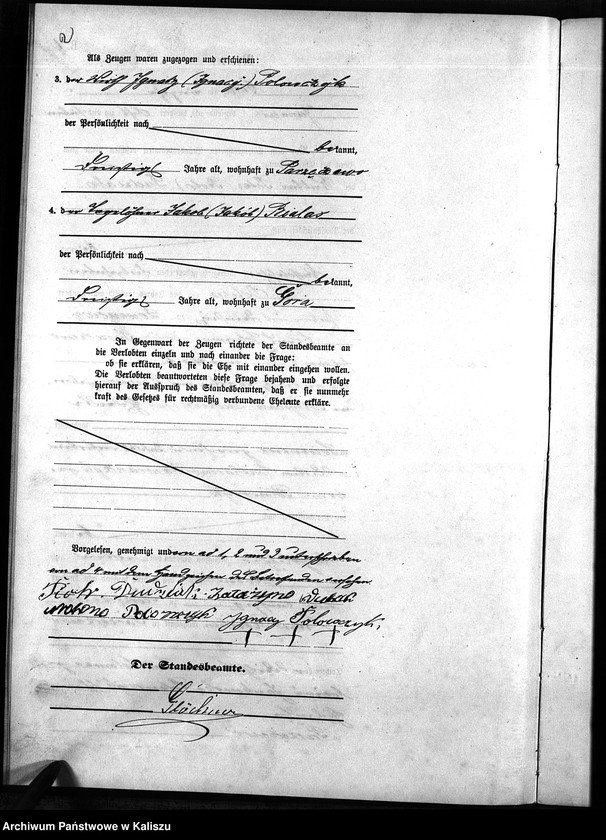 Als Zeugen waren zugezogen und erschienen:
3. der Wirth Ignatz (Ignacy) Polowczyk
der Persönlichkeit nach
bekannt,
dreißig Jahre alt, wohnhaft zu Parzęczewo
4. der Tagelöhner Jakob (Jakób) Bialas
der Persönlichkeit nach
bekannt,
dreißig Jahre alt, wohnhaft zu Góra
In Gegenwart der Zeugen richtete der Standesbeamte an
die Verlobten einzeln und nach einander die Frage:
ob sie erklären, daß sie die Ehe mit einander eingehen wollen.
Die Verlobten beantworteten diese Frage bejahend und erfolgte
hierauf der Ausspruch des Standesbeamten, daß er sie nunmehr
kraft des Gesetzes für rechtmäßig verbundene Eheleute erkläre.
Vorgelesen, genehmigt und von ad 1, 2 und 3 unterschrieben
von ad 4 mit dem Handzeichen des betreffenden versehen
Piotr Katarzyna
Ignacy Polowczyk,
+ + +
Der Standesbeamte.
Archiwum Państwowe w Kaliszu